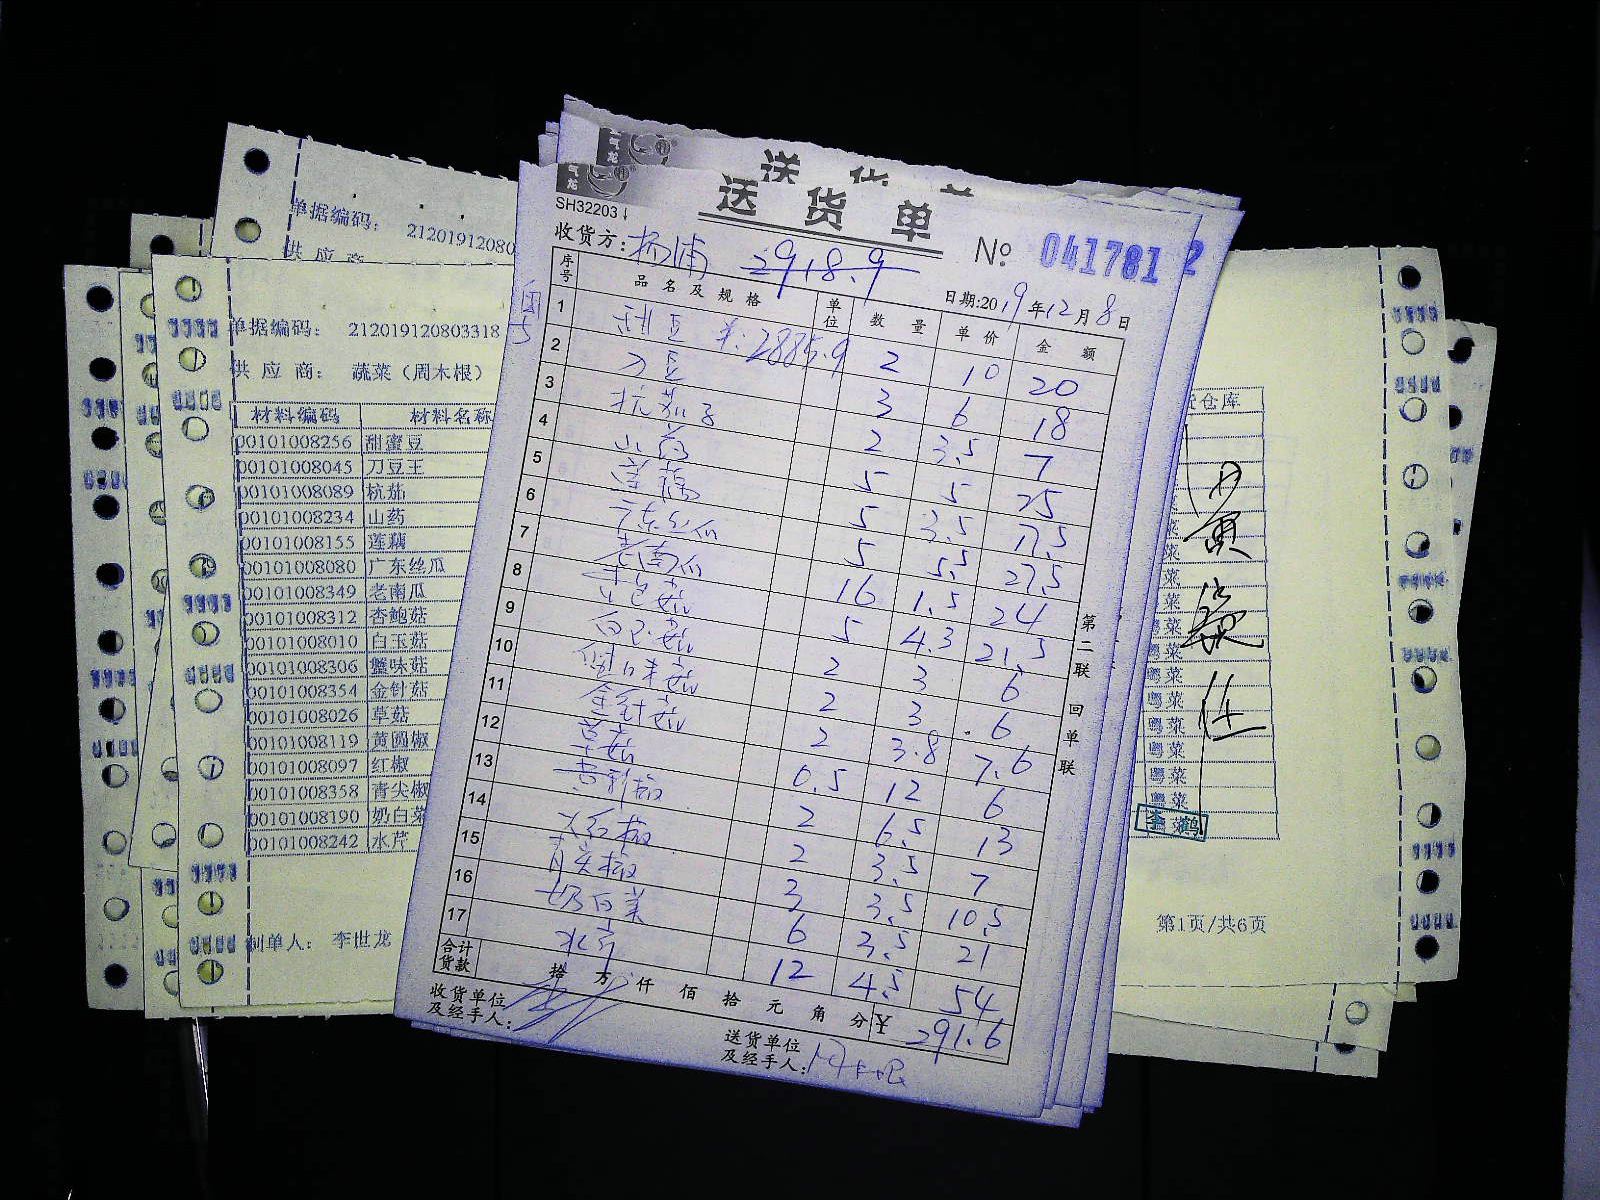 送货单
送货单
SH32203
收货方：杨浦 2918.9
№ 041781 2
日期:2019年12月8日
序号 品名及规格 单位 数量 单价 金额
1 甜豆 2885.9 2 10 20
2 刀豆 3 6 18
3 杭茄子 2 3.5 7
4 山药 5 5 25
5 莲藕 5 3.5 17.5
6 广东丝瓜 5 5.5 27.5
7 老南瓜 16 1.5 24
8 杏包菇 5 4.3 21.5
9 白玉菇 2 3 6
10 蟹味菇 2 3 6
11 金针菇 2 3.8 7.6
12 草菇 0.5 12 6
13 黄彩椒 2 6.5 13
14 大红椒 2 3.5 7
15 青尖椒 3 3.5 10.5
16 奶白菜 6 3.5 21
17 水芹 12 4.5 54
合计货款 拾 万 仟 佰 拾 元 角 分 ¥ 291.6
收货单位及经手人：
送货单位及经手人：周木根
第二联 回单联
单据编码： 21201912080
供应商
单据编码： 212019120803318
供应商： 蔬菜（周木根）
材料编码 材料名称
00101008256 甜蜜豆
00101008045 刀豆王
00101008089 杭茄
00101008234 山药
00101008155 莲藕
00101008080 广东丝瓜
00101008349 老南瓜
00101008312 杏鲍菇
00101008010 白玉菇
00101008306 蟹味菇
00101008354 金针菇
00101008026 草菇
00101008119 黄圆椒
00101008097 红椒
00101008358 青尖椒
00101008190 奶白菜
00101008242 水芹
制单人： 李世龙
货仓库
菜
菜
菜
菜
粤菜
粤菜
粤菜
粤菜
粤菜
粤菜
粤菜
粤菜
第1页/共6页